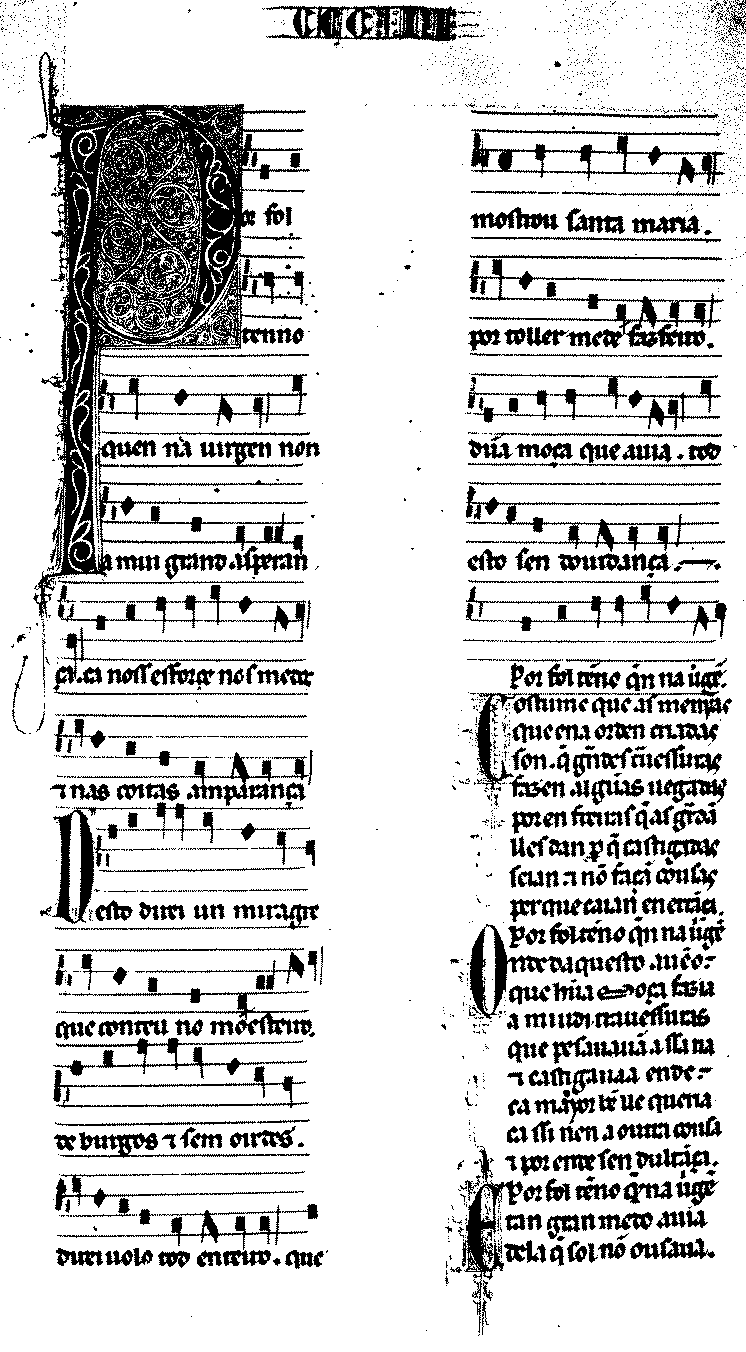 Por fol
tenno
quen na uirgen non
a mui grand asperan
ça. ca noss esforç e nos mete
⁊ nas coitas amparança
Desto direi un miragre
que conteu no mõesteiro.
de burgos ⁊ sem oirdes.
direiuolo tod enteiro. que
mostrou santa maria.
por toller med e fazfeiro.
dũa moça que auia. tod
esto sen dourdança.
Por fol tẽno q̃n na uirgẽ.
Costume que as
que ena orden criadas
son. q̃ grãdes trauessuras
fazen algũas uegadas
poren freiras q̃ as grã
lles dan por q̃ castigadas
seian ⁊ nõ façã cousas
per que caian en errãça.
Por fol tẽno q̃n na uirgẽ
Onde daquesto auẽo
que hũa moça fazia
a miudi trauessuras
que pesauan a ssa tia
⁊ castigaua a ende
ca mayor bẽ lle queria
ca ssi nen a outra cousa
⁊ por ende sen dultãça.
Por fol tẽno q̃n na uirgẽ
E tan gran medo auia
dela q̃ sol nõ ousaua.